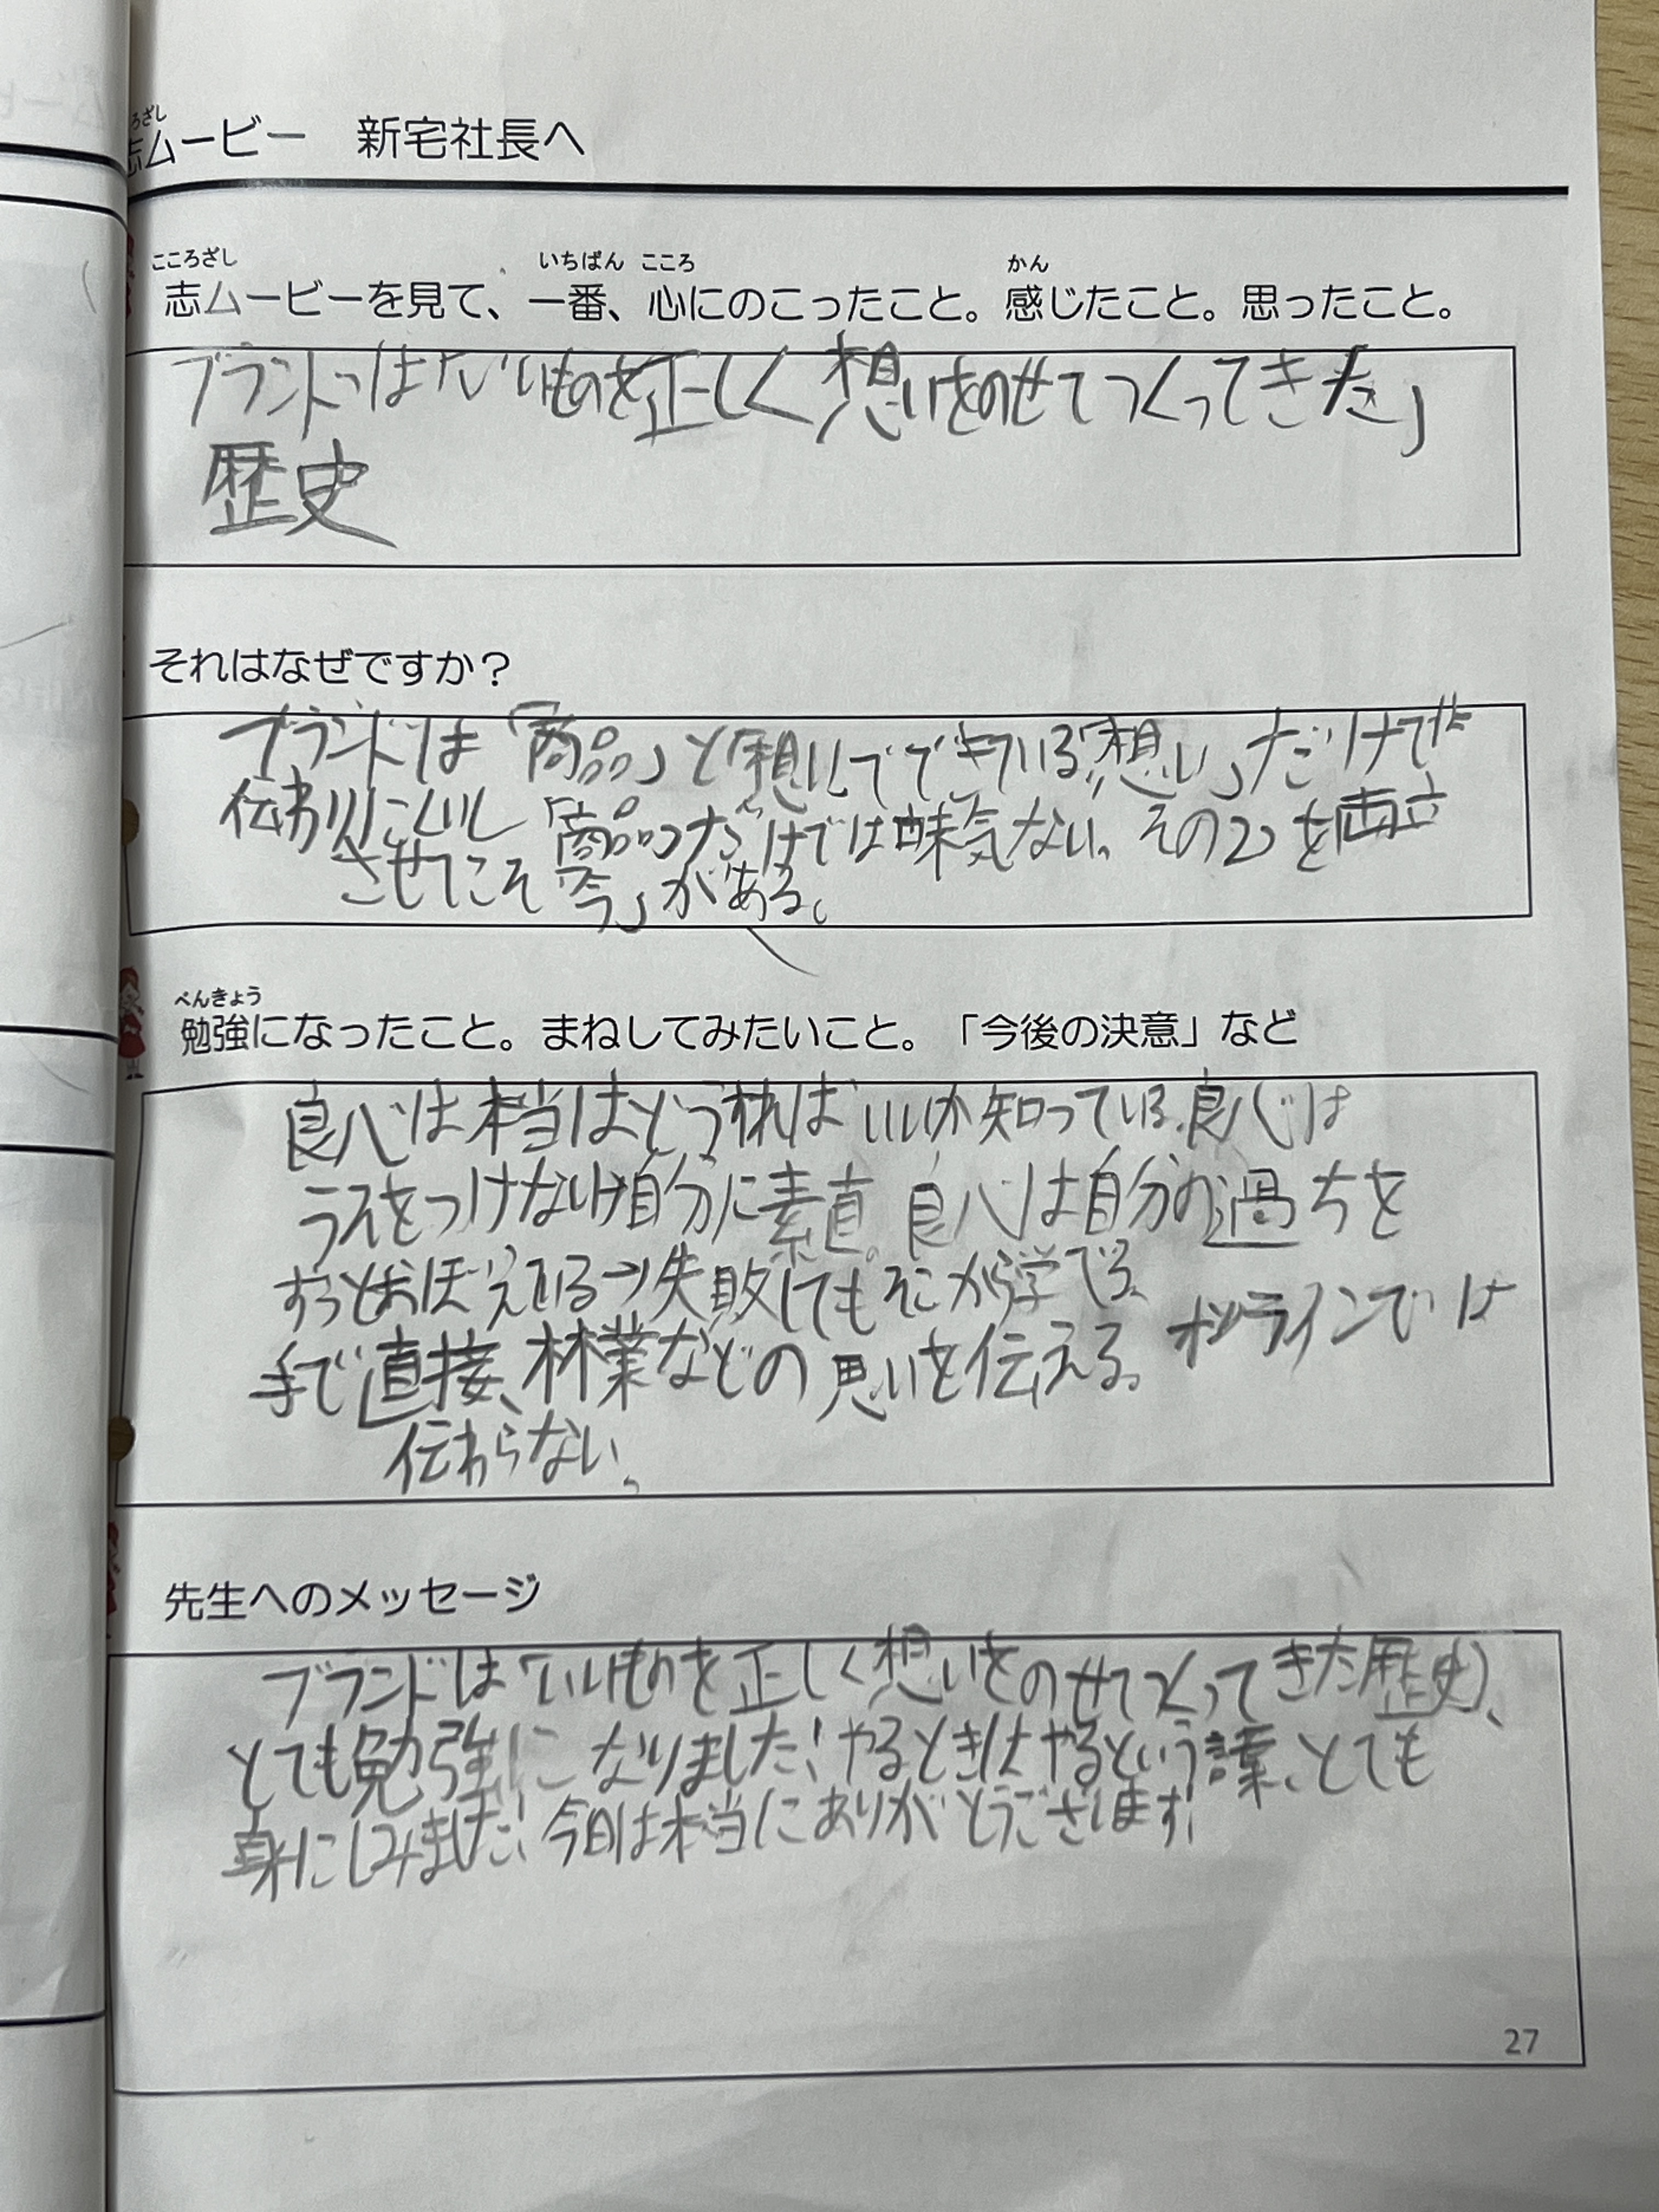 ろざし
志ムービー　新宅社長へ
こころざし　いちばん　こころ　かん
志ムービーを見て、一番、心にのこったこと。感じたこと。思ったこと。
ブランドっは「いいものを正しく想いをのせてつくってきた」
歴史
それはなぜですか？
ブランドは「商品」と「想い」でできている「想い」だけでは
伝わりにくいし「商品」だけでは味気ない。その2つを両立
させてこそ「今」がある。
べんきょう
勉強になったこと。まねしてみたいこと。「今後の決意」など
良心は本当はどうすればいいか知っている。良心は
うそをつけないけど自分に素直。良心は自分の過ちを
ずっとおぼえている→失敗してもそこから学べる。
手で直接、林業などの思いを伝える。オンラインでは
伝わらない。
先生へのメッセージ
ブランドは「いいものを正しく想いをのせてつくってきた歴史」、
とても勉強になりました！やるときはやるという言葉、とても
身にしみました！今日は本当にありがとうございます！
27